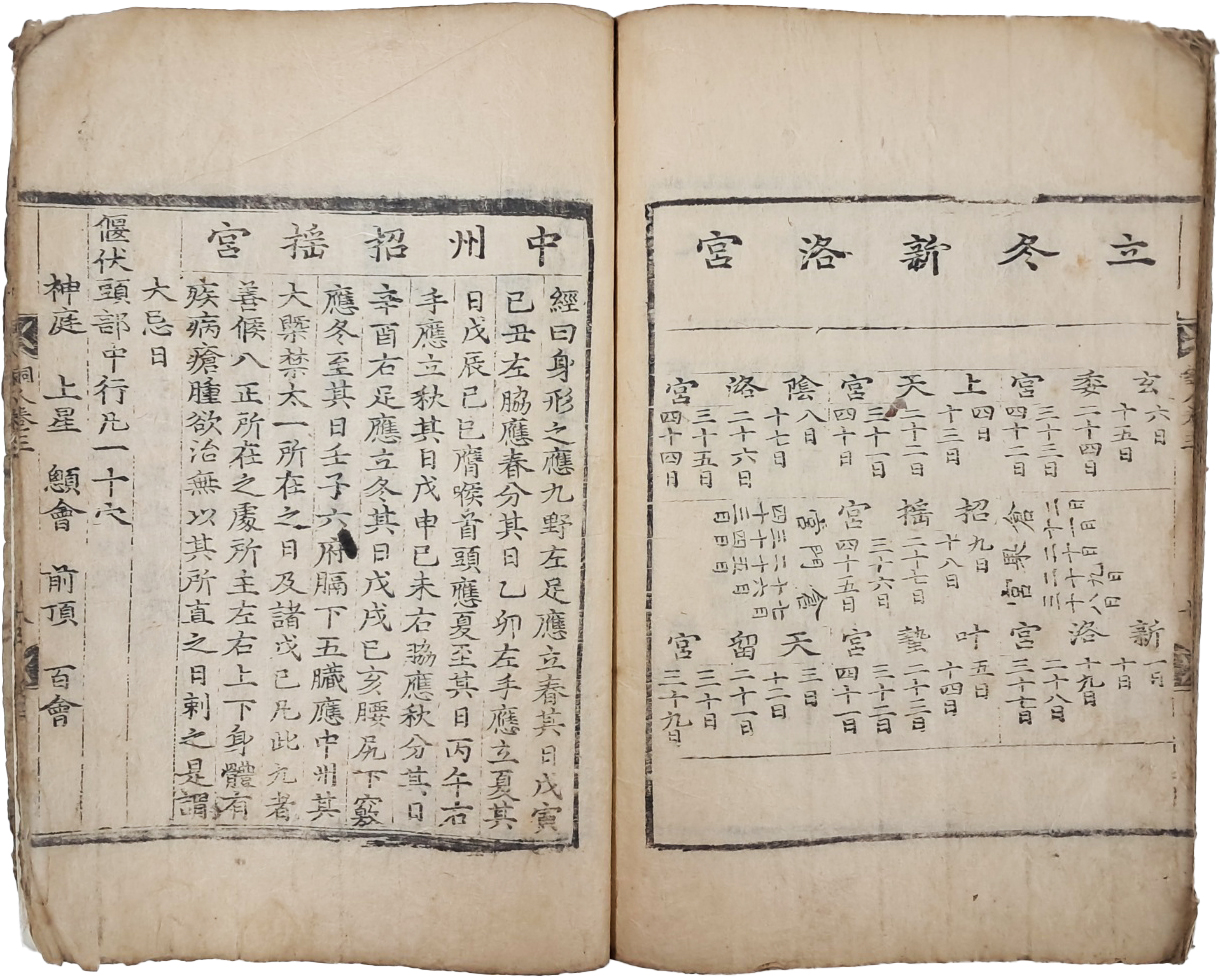 立冬新洛宮
玄委宮
六日
十五日
二十四日
三十三日
四十二日
上天宮
四日
十三日
二十二日
三十一日
四十日
陰洛宮
八日
十七日
二十六日
三十五日
四十四日
倉果宮
招搖宮
九日
十八日
二十七日
三十六日
四十五日
倉門宮
七日
十六日
二十五日
三十四日
四十三日
新洛宮
一日
十日
十九日
二十八日
三十七日
叶蟄宮
五日
十四日
二十三日
三十二日
四十一日
天留宮
三日
十二日
二十一日
三十日
三十九日
中州招搖宮
經曰身形之應九野左足應立春其日戊寅
已丑左脇應春分其日乙卯左手應立夏其
日戊辰已巳膺喉首頭應夏至其日丙午右
手應立秋其日戊申已未右脇應秋分其日
辛酉右足應立冬其日戊戌已亥腰尻下竅
應冬至其日壬子六府膈下五臟應中州其
大槩禁太一所在之日及諸戊已凡此九者
善候八正所在之處所主左右上下身體有
疾病瘡腫欲治無以其所直之日刺之是謂
大忌日
偃伏頭部中行凡一十穴
神庭 上星 顖會 前頂 百會
銅人卷三